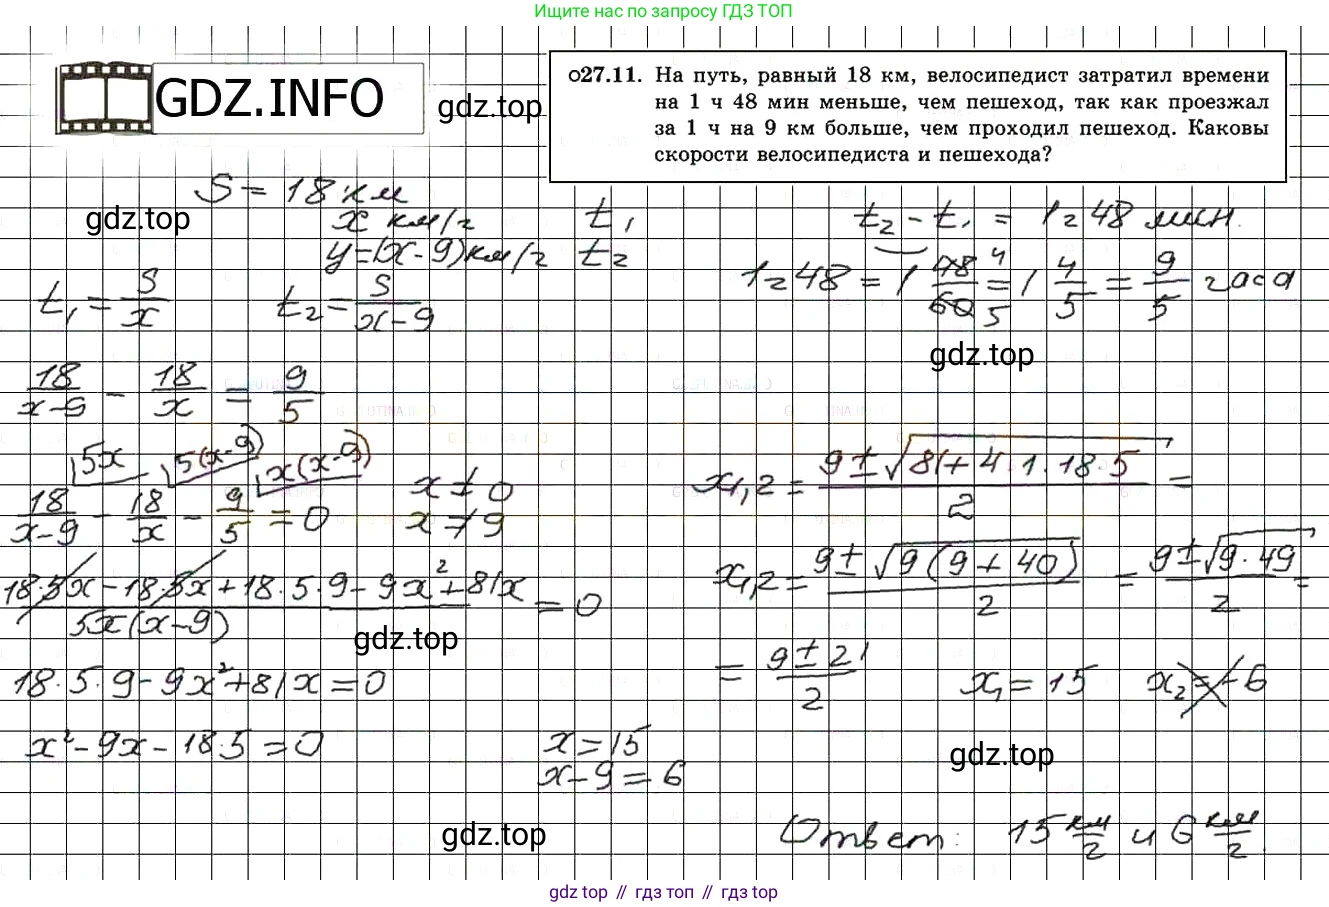 Ищите нас по запросу ГДЗ ТОП
GDZ.INFO
gdz.top
27.11. На путь, равный 18 км, велосипедист затратил времени
на 1 ч 48 мин меньше, чем пешеход, так как проезжал
за 1 ч на 9 км больше, чем проходил пешеход. Каковы
скорости велосипедиста и пешехода?
S = 18 км
gdz.top
x км/ч t₁
y=(x-9)км/ч t₂
t₂ - t₁ = 1ч 48 мин.
t₁ = S/x t₂ = S/(x-9)
1ч48 = 1 48/60 = 1 4/5 = 9/5 часа
gdz.top
18/(x-9) - 18/x = 9/5
5x 5(x-9) x(x-9)
18/(x-9) - 18/x - 9/5 = 0
x ≠ 0
x ≠ 9
(18·5x - 18·5x + 18·5·9 - 9x² + 81x)/(5x(x-9)) = 0
gdz.top
18·5·9 - 9x² + 81x = 0
x² - 9x - 18·5 = 0
x₁,₂ = (9 ± √(81 + 4·1·18·5))/2 =
x₁,₂ = (9 ± √(9(9+40)))/2 = (9 ± √(9·49))/2 =
= (9 ± 21)/2 x₁ = 15 x₂ = -6
x = 15
x - 9 = 6
gdz.top
gdz.top
Ответ: 15 км/ч и 6 км/ч.
gdz top // гдз топ // гдз top